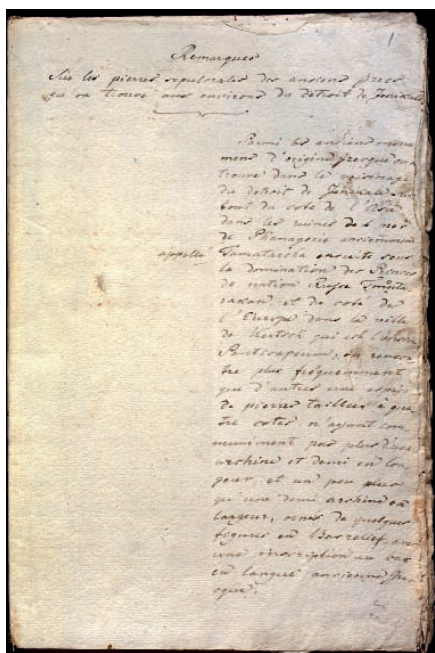 1
Remarques
Sur les pierres sepulcrales des anciens grecs
qu'on trouve aux environs du detroit de Jenikale
Parmi les anciens monu
mens d'origine grecque qu'on
trouve dans le voisinage
du detroit de Jenikale
tout du coté de l'Asie
dans les ruines de
de Phanagorie
appellé Tamatarcha ensuite sous
la domination des Princes
de nation Russe Tmuta
rakan, et du coté de
l'Europe dans la ville
de Kertsch qui est l'ancien
Panticapeum, on rencon
tre plus frequemment
que d'autres une espece
de pierres taillées à qua
tre cotés n'ayant com
munément pas plus d'une
archine et demi en lon
gueur, et un peu plus
qu'une demi archine en
largeur, ornés de quelques
figures en Basrelief avec
une inscription au bas
en langue ancienne Gre
cque.